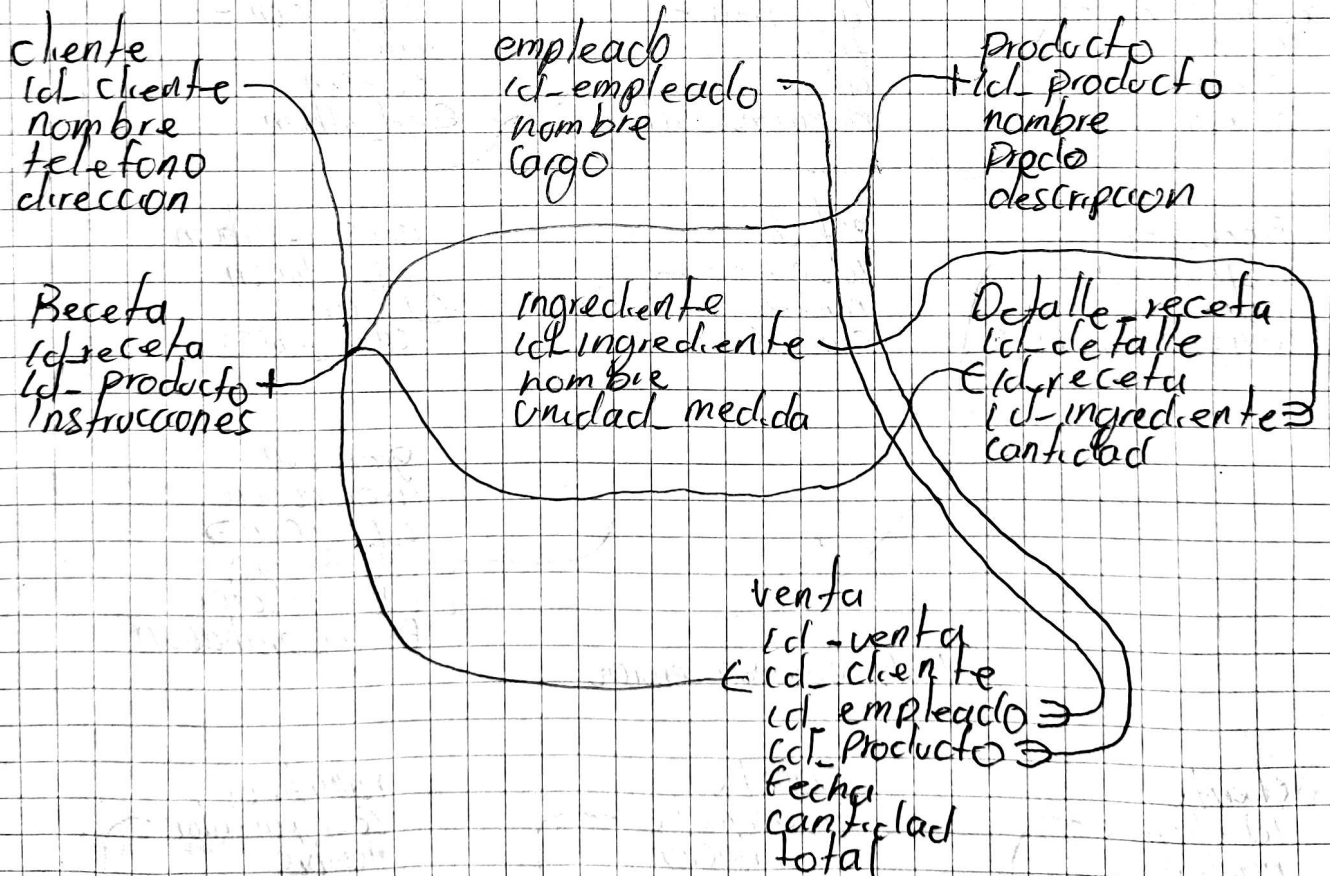 cliente
id_cliente
nombre
telefono
direccion
empleado
id_empleado
nombre
cargo
Producto
id_producto
nombre
Precio
descripcion
Receta
id_receta
id_producto
instrucciones
ingrediente
id_ingrediente
nombre
unidad_medida
Detalle_receta
id_detalle
id_receta
id_ingrediente
cantidad
venta
id_venta
id_cliente
id_empleado
id_Producto
fecha
cantidad
total